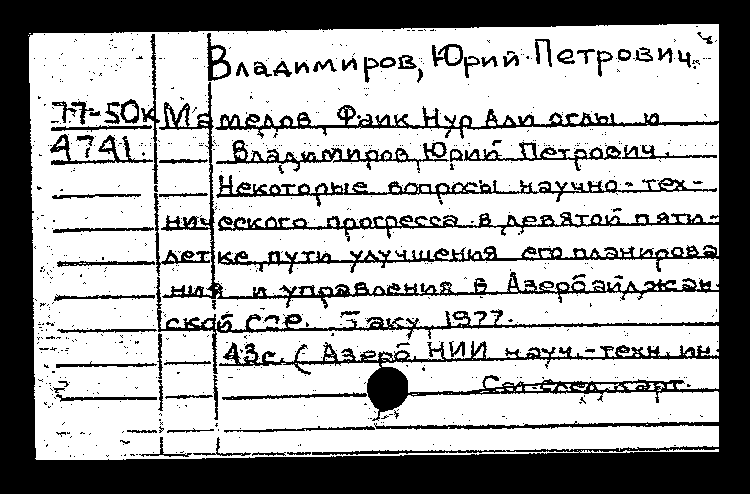 Владимиров, Юрий Петрович.
77-50к Мамедов, Фаик Нур Али оглы и
4741. Владимиров, Юрий Петрович.
Некоторые вопросы научно-тех-
нического прогресса в девятой пяти-
летке, пути улучшения его планирова
ния и управления в Азербайджан-
ской ССР. Баку, 1977.
43с. (Азерб. НИИ науч.-техн. ин-
См. след. карт.